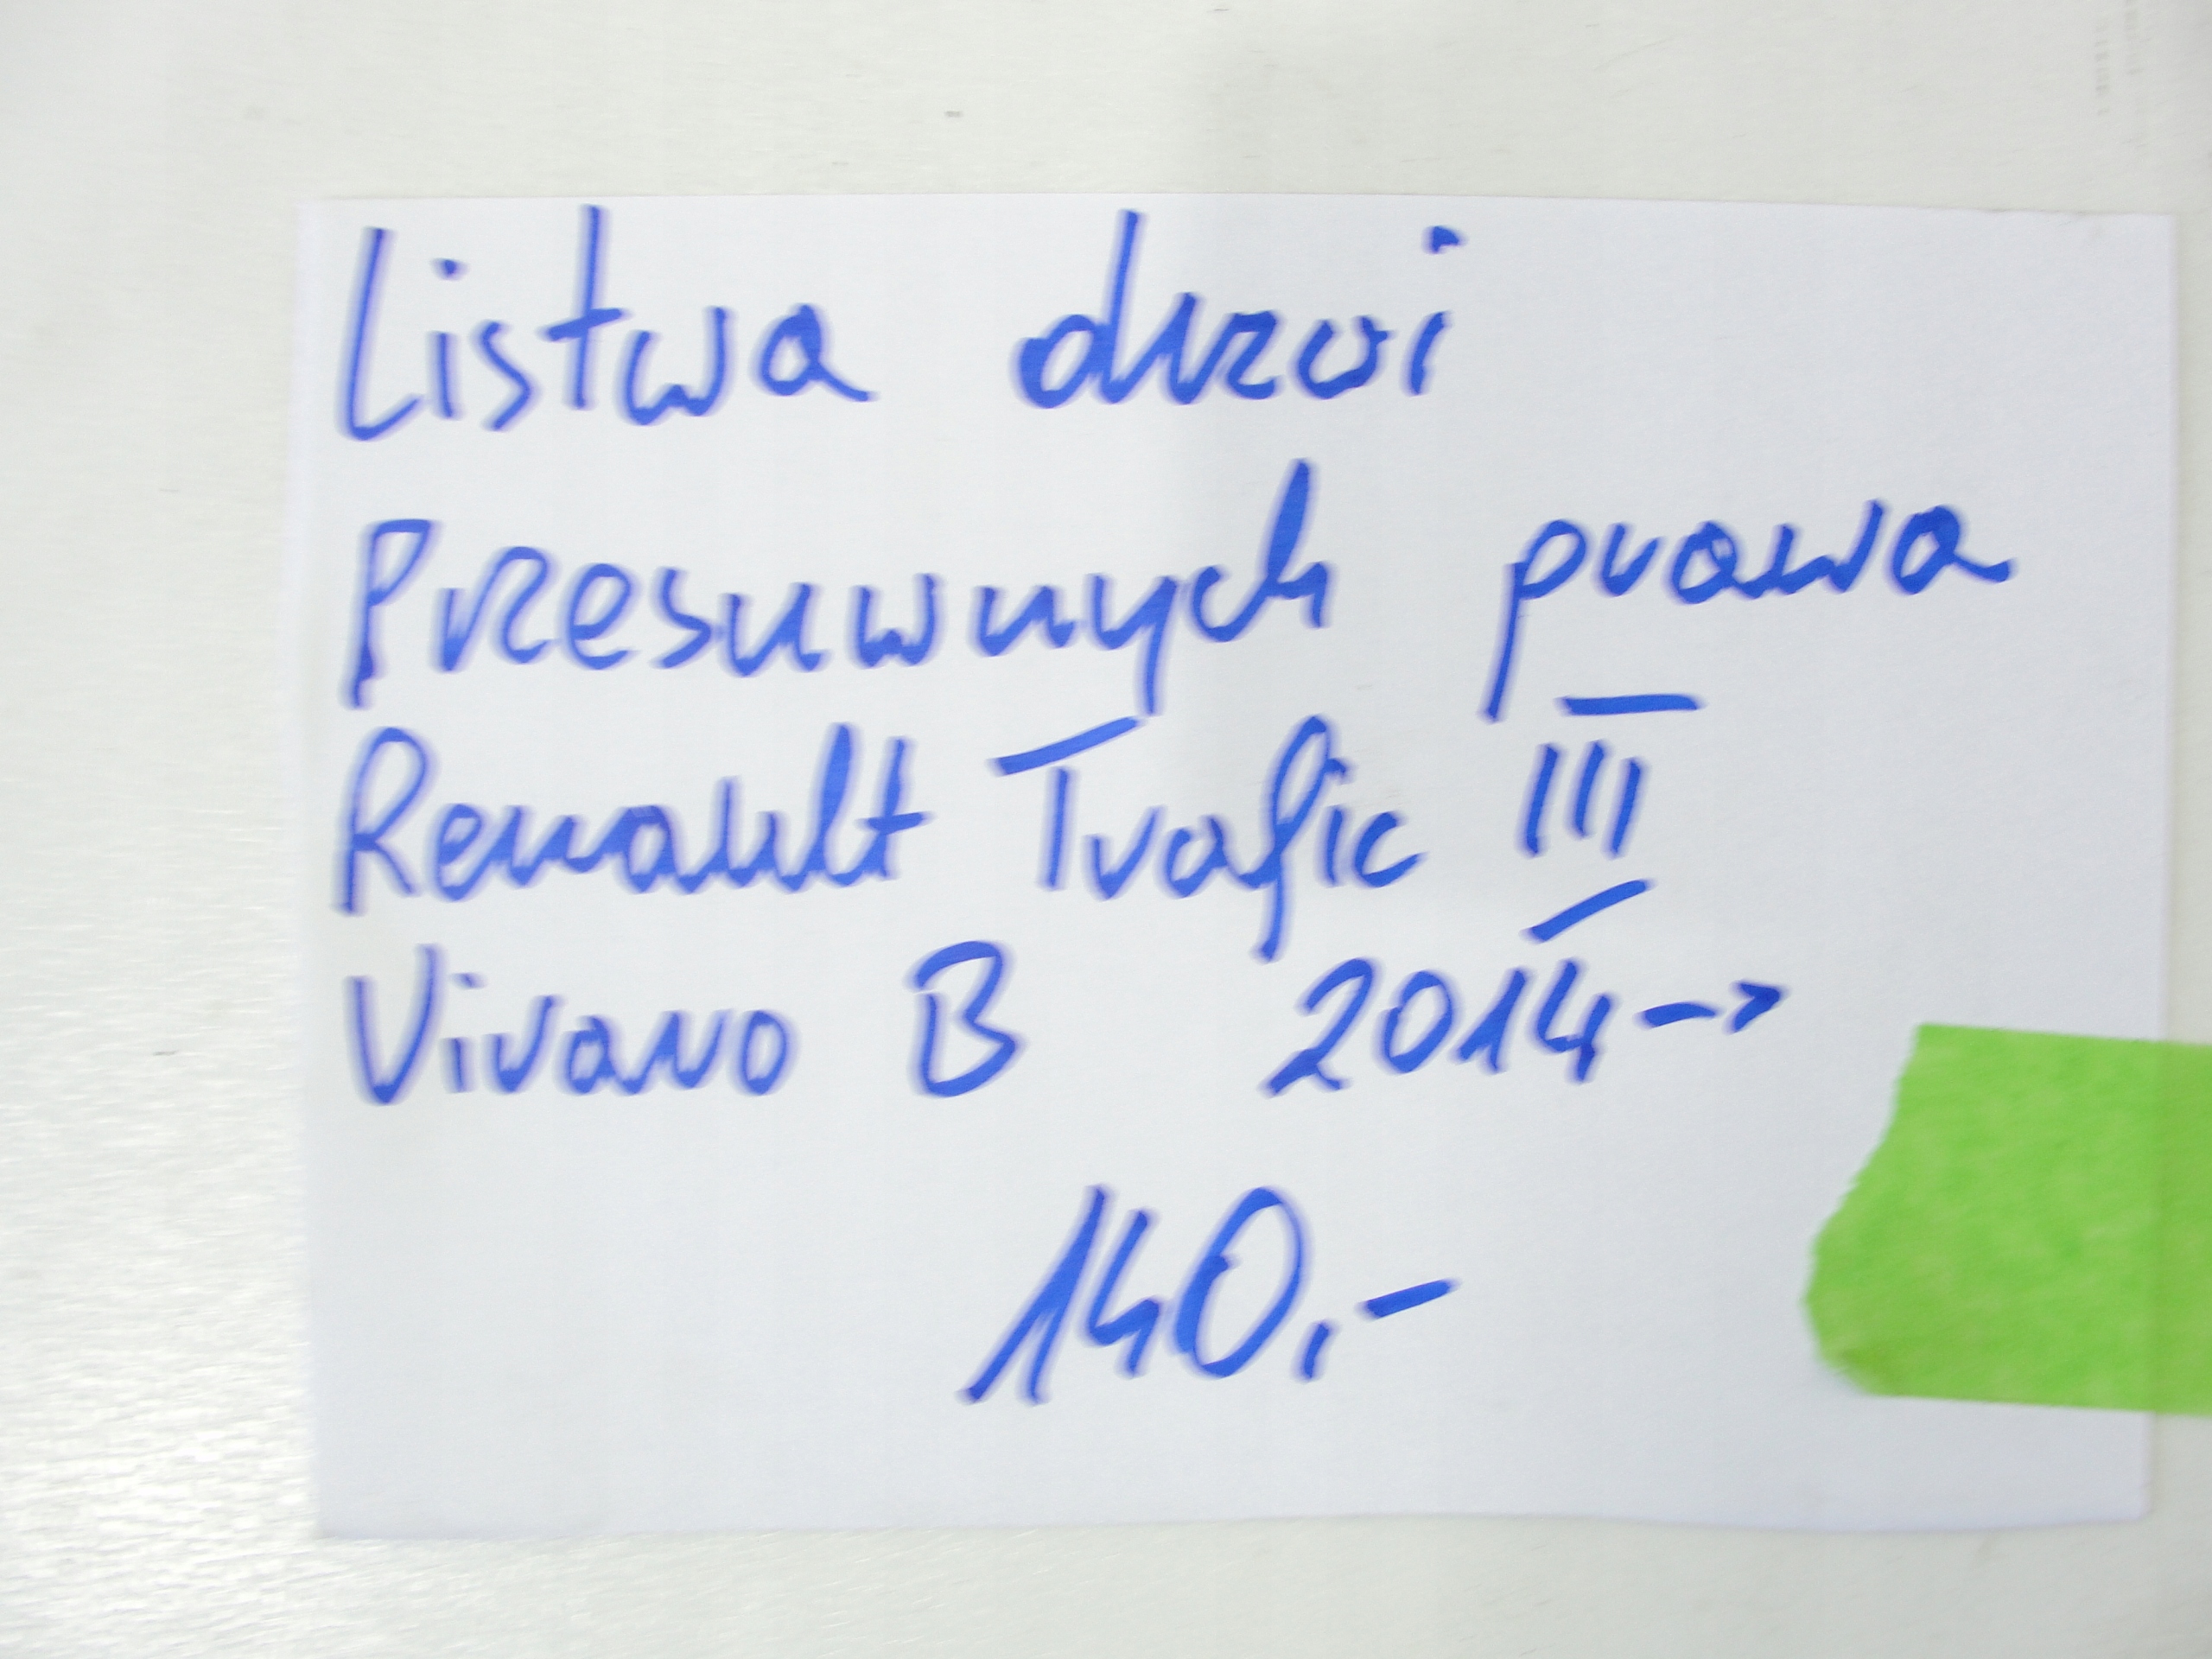 Listwa drzwi
Przesuwnych prawa
Renault Trafic III
Vivaro B 2014->
140,-